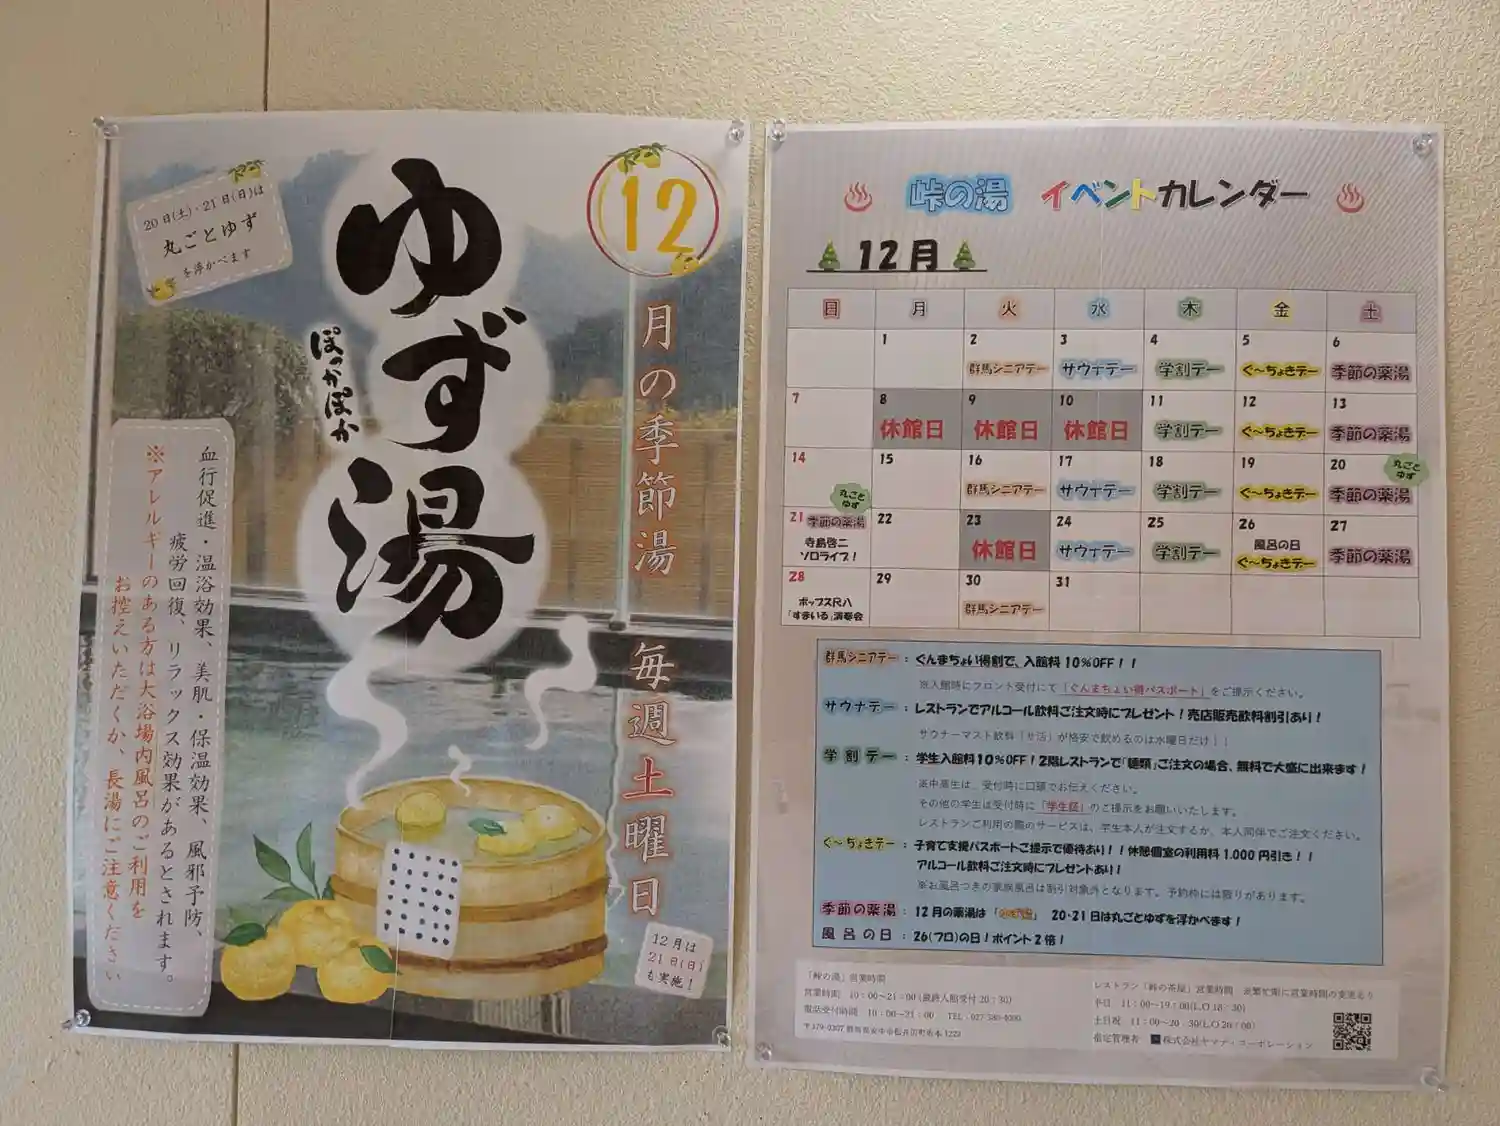 20日(土)・21日(日)は
丸ごとゆず
を浮かべます
12
月の季節湯 毎週土曜日
12月は
21日(日)
も実施!
ゆず湯
ぽっかぽか
血行促進・温浴効果、美肌・保温効果、風邪予防、
疲労回復、リラックス効果があるとされます。
※アレルギーのある方は大浴場内風呂のご利用を
お控えいただくか、長湯にご注意ください
峠の湯 イベントカレンダー
12月
日 月 火 水 木 金 土
1 2 3 4 5 6
群馬シニアデー サウナデー 学割デー ぐ〜ちょきデー 季節の薬湯
7 8 9 10 11 12 13
休館日 休館日 休館日 学割デー ぐ〜ちょきデー 季節の薬湯
14 15 16 17 18 19 20 丸ごとゆず
群馬シニアデー サウナデー 学割デー ぐ〜ちょきデー 季節の薬湯
丸ごとゆず
21 季節の薬湯 22 23 24 25 26 27
寺島啓二 ソロライブ! 休館日 サウナデー 学割デー 風呂の日 ぐ〜ちょきデー 季節の薬湯
28 29 30 31
ポップスR八 「すまいる」演奏会 群馬シニアデー
群馬シニアデー : ぐんまちょい得割で、入館料10%OFF!!
※入館時にフロント受付にて「ぐんまちょい得パスポート」をご提示ください。
サウナデー : レストランでアルコール飲料ご注文時にプレゼント!売店販売飲料割引あり!
サウナーマスト飲料「サ活」が格安で飲めるのは水曜日だけ!!
学割デー : 学生入館料10%OFF!2階レストランで「麺類」ご注文の場合、無料で大盛に出来ます!
※中高生は、受付時に口頭でお伝えください。
その他の学生は受付時に「学生証」のご提示をお願いいたします。
レストランご利用の際のサービスは、学生本人が注文するか、本人同伴でご注文ください。
ぐ〜ちょきデー : 子育て支援パスポートご提示で優待あり!!休憩個室の利用料1,000円引き!!
アルコール飲料ご注文時にプレゼントあり!
※お風呂つきの家族風呂は割引対象外となります。予約枠には限りがあります。
季節の薬湯 : 12月の薬湯は「ゆず湯」 20・21日は丸ごとゆずを浮かべます!
風呂の日 : 26(フロ)の日!ポイント2倍!
「峠の湯」営業時間
営業時間 10:00〜21:00(最終入館受付20:30)
電話受付時間 10:00〜21:00 TEL:027-380-4000
〒379-0307 群馬県安中市松井田町坂本1222
レストラン「峠の茶屋」営業時間 ※繁忙期に営業時間の変更あり
平日 11:00〜19:00(L.O 18:30)
土日祝 11:00〜20:30(L.O 20:00)
指定管理者 株式会社ヤマデ・コーポレーション